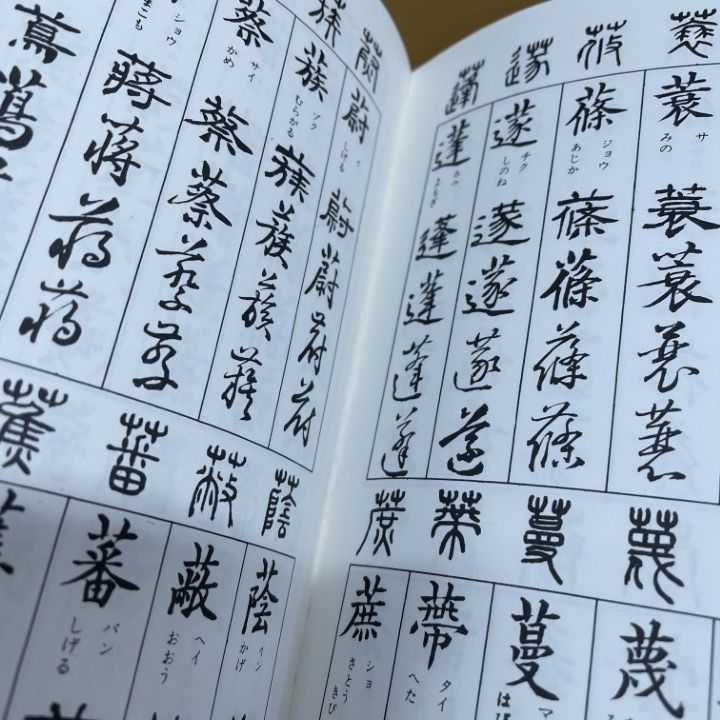 蓑 蓑 蓑 蓑 蓑 蓑
サ
みの
蓧 蓧 蓧 蓧 蓧 蓧
ジョウ
あじか
蓫 蓫 蓫 蓫 蓫 蓫
チク
しのね
蓬 蓬 蓬 蓬 蓬 蓬
ホウ
よもぎ
蔑 蔑
蔓 蔓
マ
はび
蔕 蔕
タイ
へた
蔗 蔗
ショ
さとう
きび
蔚 蔚 蔚 蔚 蔚 蔚
イ
しげる
蔟 蔟 蔟 蔟 蔟 蔟
ゾク
むらがる
蔡 蔡 蔡 蔡 蔡
サイ
かめ
蔣 蔣 蔣 蔣
ショウ
まこも
蔦 蔦
蔭 蔭
イン
かげ
蔽 蔽
ヘイ
おおう
蕃 蕃
バン
しげる
蕉